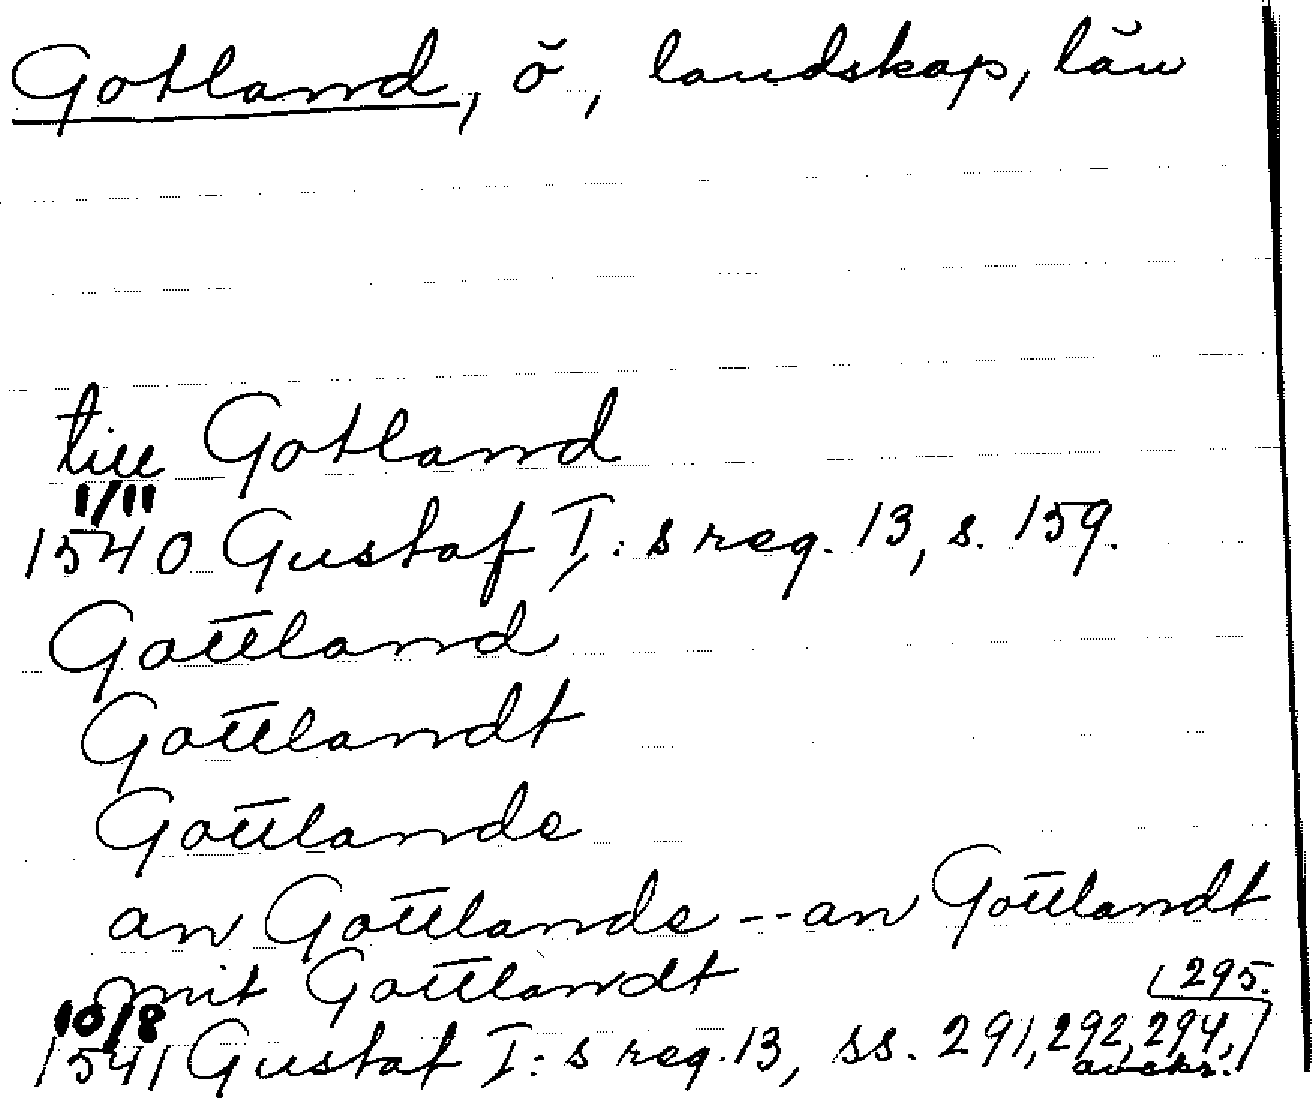 Gotland, ö, landskap, län
till Gotland
1/11
1540 Gustaf I:s reg. 13, s. 159.
Gottland
Gottlandt
Gottlande
an Gottlande -- an Gottlandt
mit Gottlandt
295.
10/8
1541 Gustaf I:s reg. 13, ss. 291, 292, 294,
avskr.